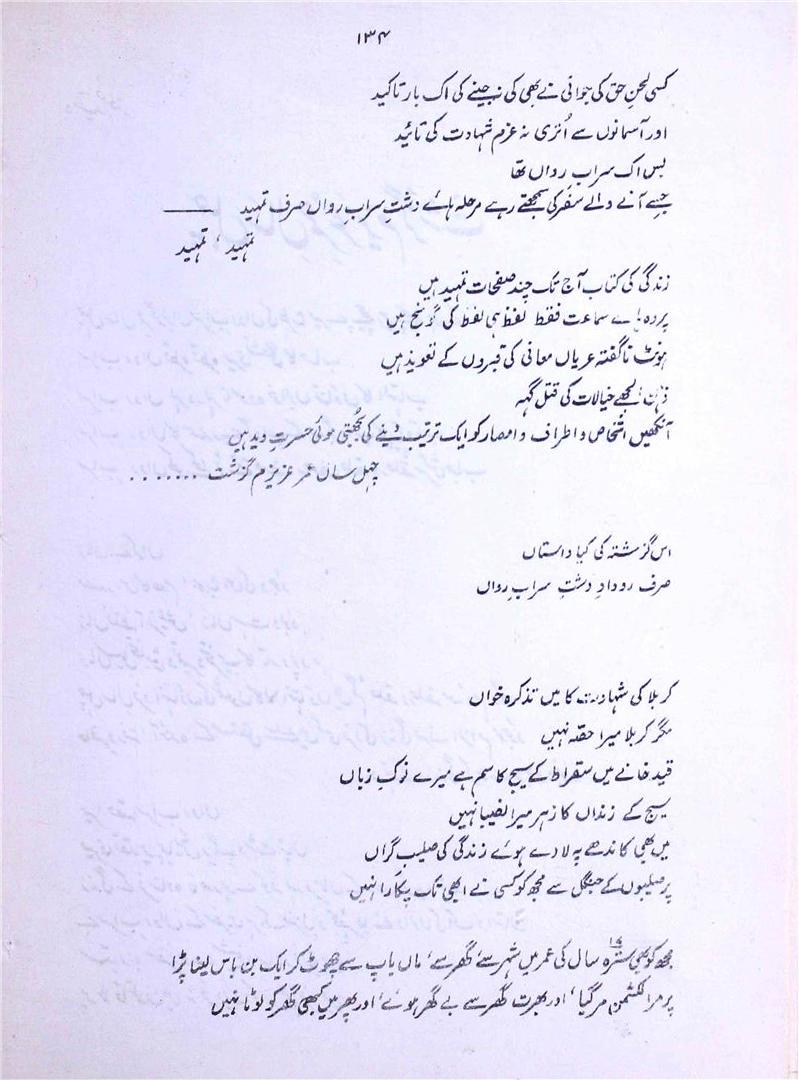 ۱۳۴
کسی لحنِ حق کی جوانی نے بھی کی نہ جینے کی اک بار تاکید
اور آسمانوں سے اُتری نہ عزم شہادت کی تائید
بس اک سراب رواں تھا
جسے آنے والے سفر کی سمجھتے رہے مرحلہ ہائے دشتِ سرابِ رواں صرف تمہید ـــــــ
تمہید، تمہید
زندگی کی کتاب آج تک چند صفحات تمہید ہیں
پردہ ہائے سماعت فقط لفظ ہی لفظ کی گونج ہیں
ہونٹ ناگفتہ عریاں معانی کی قبروں کے تعویذ ہیں
ذہن الجھے خیالات کی قتل گہہ
آنکھیں اشخاص و اطراف و امصار کو ایک ترتیب دینے کی بجھتی ہوئی حسرتِ دید ہیں
چہل سال عمر عزیزم گزشت ........
اس گزشتہ کی کیا داستاں
صرف رودادِ دشتِ سرابِ رواں
کربلا کی شہادت کا میں تذکرہ خواں
مگر کربلا میرا حصّہ نہیں
قید خانے میں سقراط کے سچ کا سم ہے میرے نوکِ زباں
سچ کے زنداں کا زہر میرا نصیبا نہیں
میں بھی کاندھے پہ لادے ہوئے زندگی کی صلیبِ گراں
پر صلیبوں کے جنگل سے مجھ کو کسی نے ابھی تک پکارا نہیں
مجھ کو بھی سترہ سال کی عمر میں شہر سے، گھر سے، ماں باپ سے چھوٹ کر ایک بن باس لینا پڑا
پر مرا لکشمن مر گیا، اور بھرت گھر سے بے گھر ہوئے، اور پھر میں کبھی گھر کو لوٹا نہیں